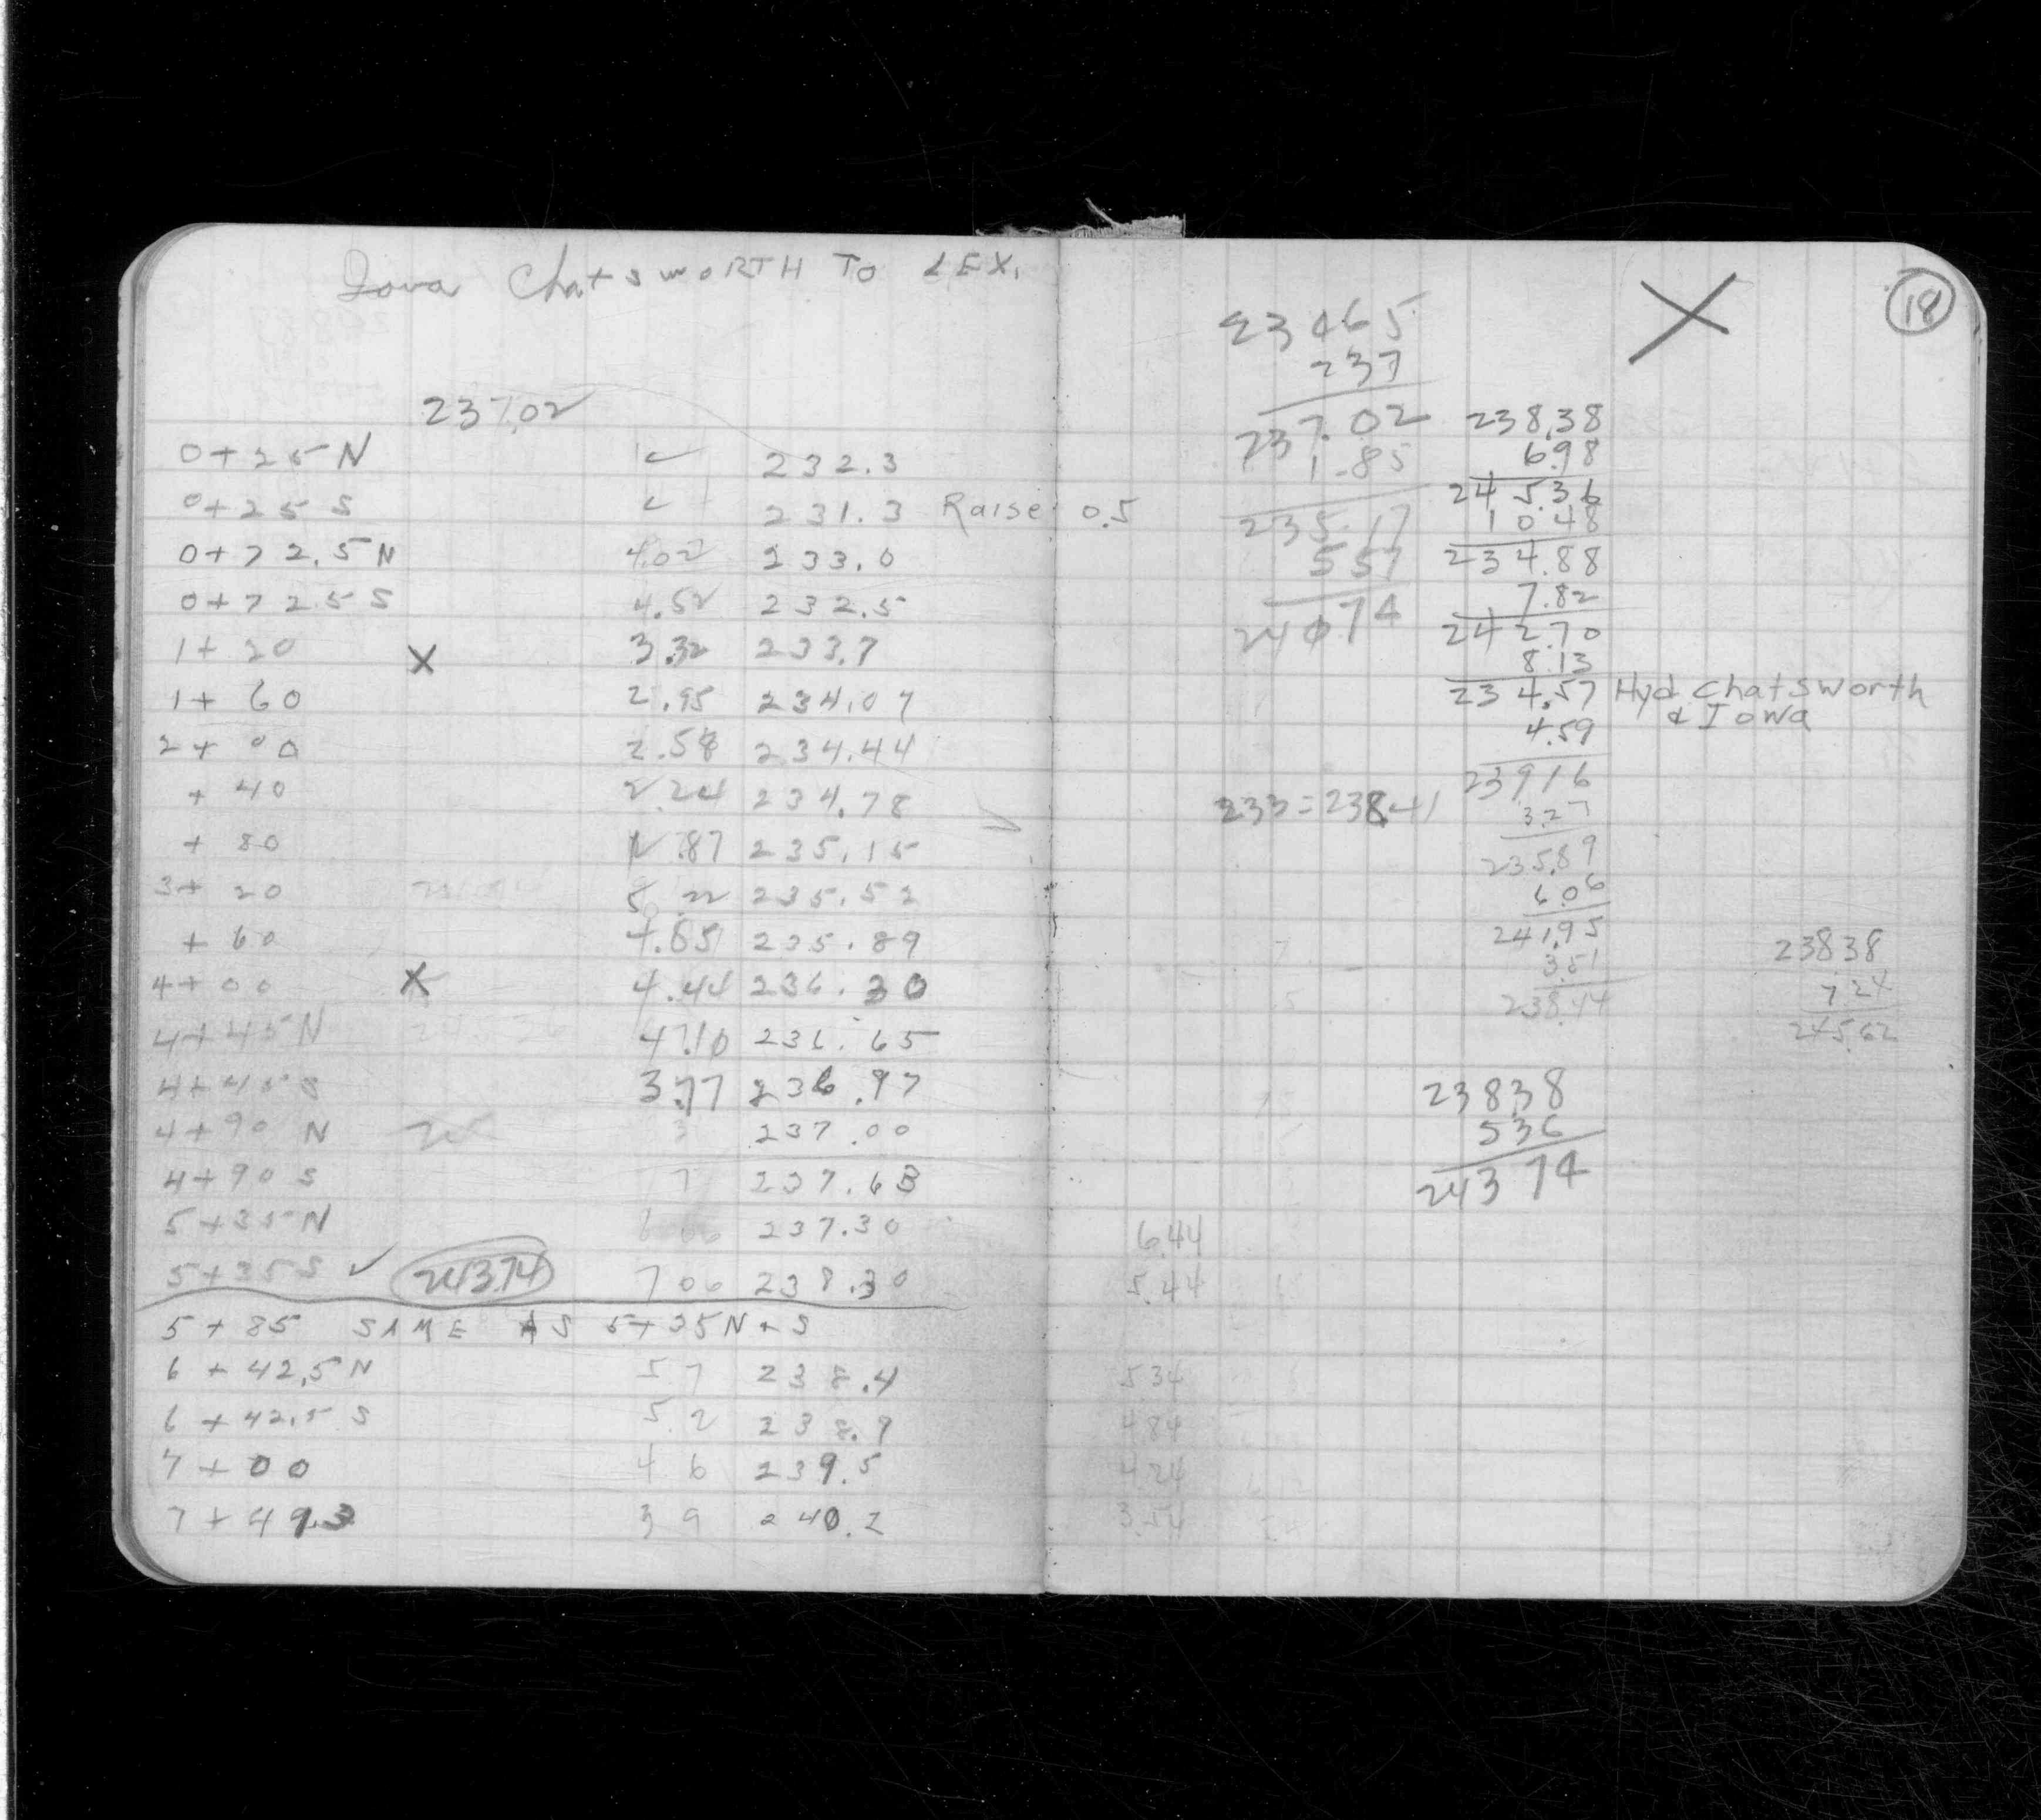 Iowa Chatsworth TO LEX.
237.02
0+25 N 232.3
0+25 S 231.3 Raise 0.5
0+72.5 N 4.02 233.0
0+72.5 S 4.52 232.5
1+20 X 3.32 233.7
1+60 2.95 234.07
2+00 2.58 234.44
+40 2.24 234.78
+80 1.87 235.15
3+20 235.52
+60 235.89
4+00 X 4.44 236.30
4+45 N 236.65
4+45 S 3.77 236.97
4+90 N 237.00
4+90 S 7 237.63
5+35 N 237.30
5+35 S ✓ 243.74 7 06 238.30
5+85 SAME AS 5+35 N & S
6+42.5 N 5 7 238.4
6+42.5 S 5 2 238.9
7+00 4 6 239.5
7+49.3 3 9 240.2
X
18
23465
237
237.02
1.85
235.17
557
240.74
238.38
6.98
245.36
1048
234.88
7.82
242.70
8.13
234.57 Hyd Chatsworth
& Iowa
4.59
239.16
3.27
235.89
6.06
241.95
3.51
238.44
233 = 238.41
238.38
7.24
245.62
238.38
536
243 74
6.44
5.44
5.34
4.84
4.24
3.54